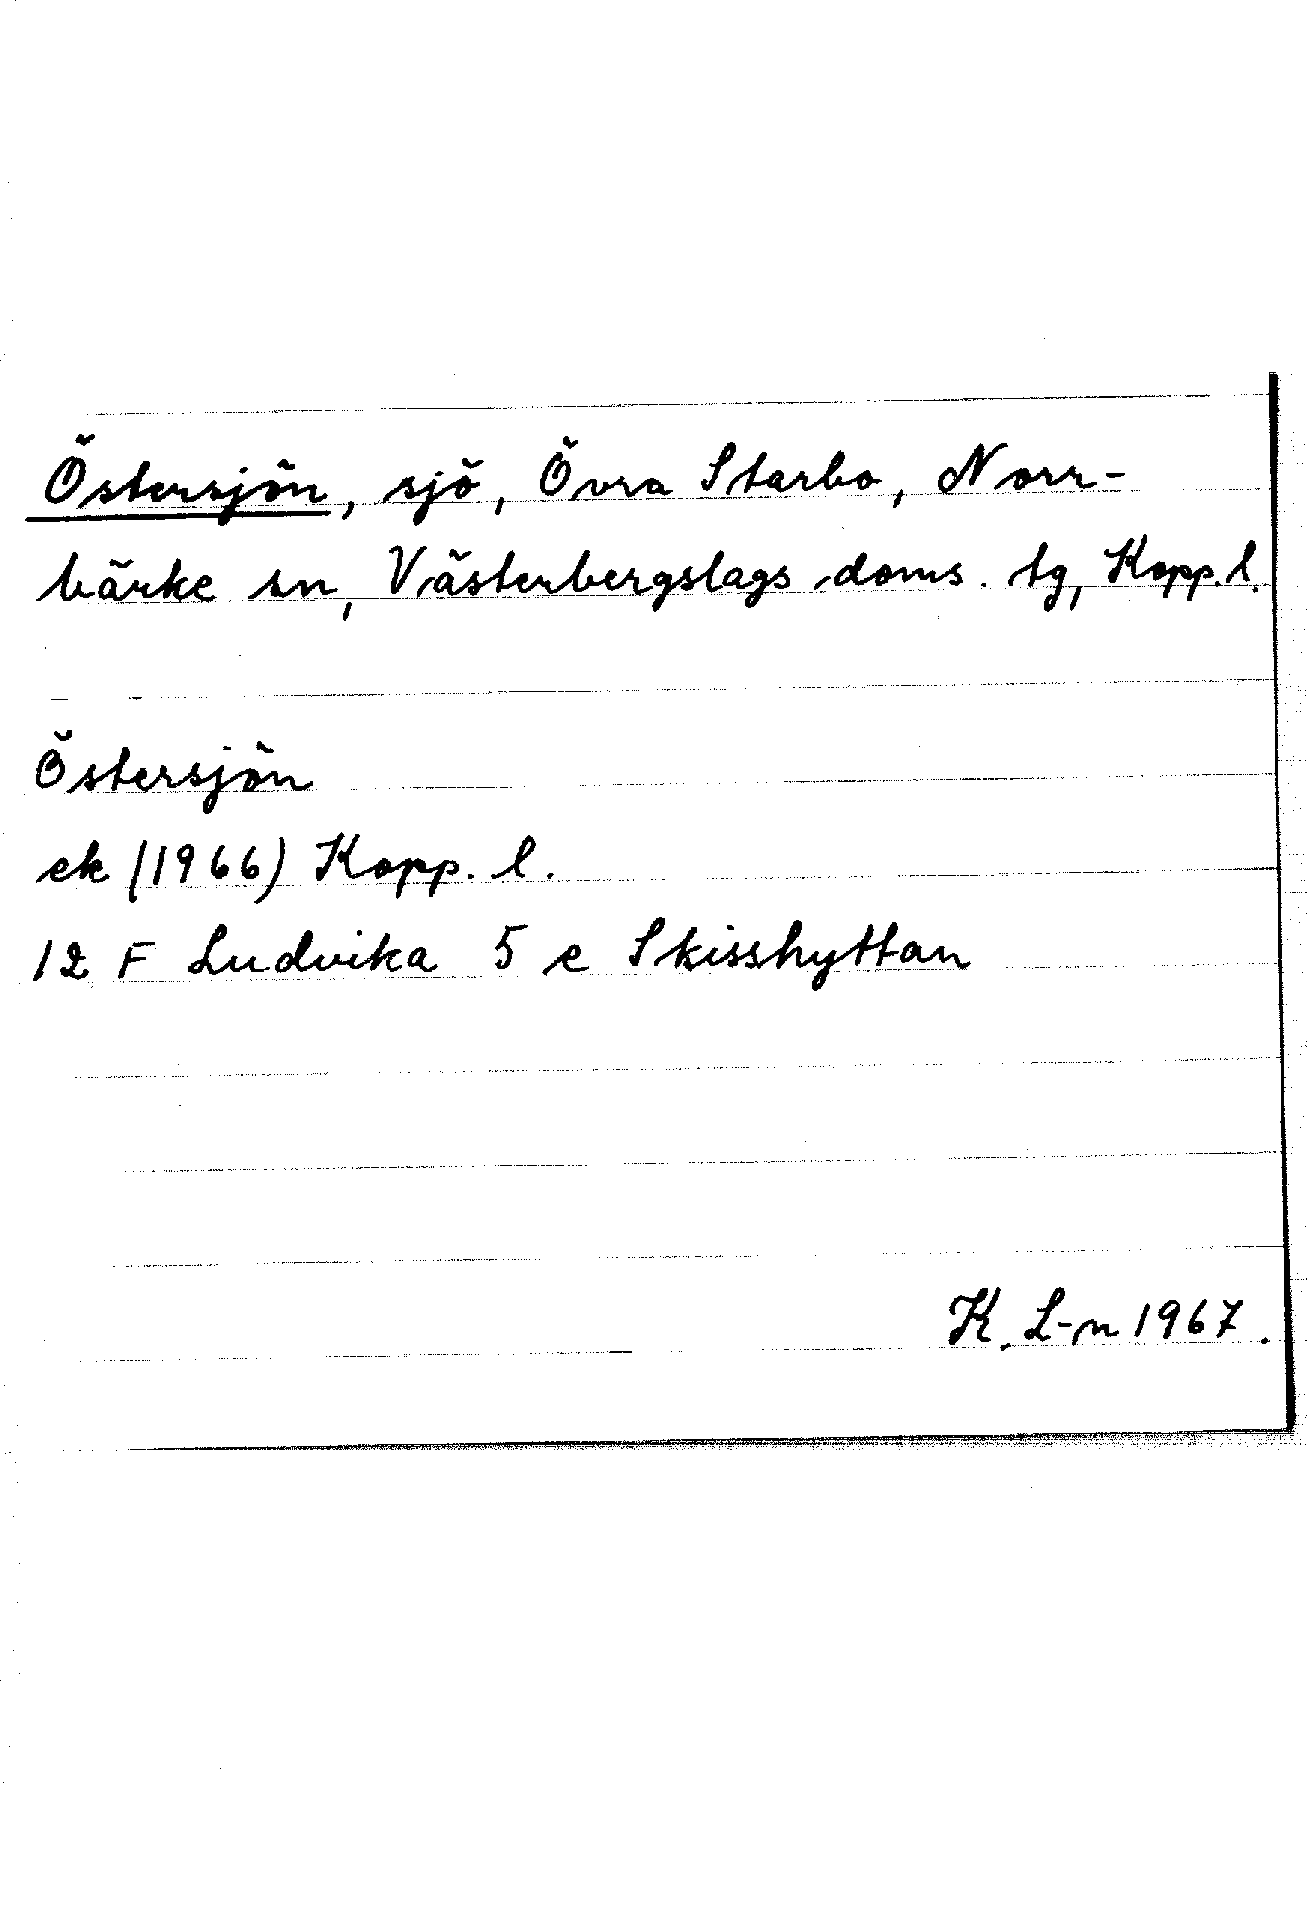 Östersjön, sjö, Övra Starbo, Norr-
bärke sn, Västerbergslags doms. tg, Kopp. l.
Östersjön
ek (1966) Kopp. l.
12 F Ludvika 5 e Skisshyttan
K. L-n 1967.